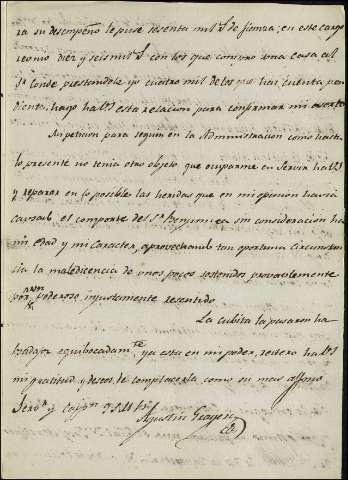 ra su desempeño le puse sesenta mil r.s de fianza; en este cargo
reunio diez y seis mil r.s con los que compro una casa al
S.r Conde prestandole yo cuatro mil de los que hai cuenta pen
diente, hago ha V.S esta relacion para confirmar mi aserto
Mi peticion para seguir en la Administracion como hasta
lo presente no tenia otro objeto que ocuparme en Servir ha V.S
y reparar en lo posible las heridas que en mi opinion havia
causado el comporte del S.r sin consideracion ha
mi edad y mi caracter, aprovechando tan oportuna circunstan
cia la maledicencia de unos pocos sostenidos provablemente
por poderoso injustamente resentido.
La cubita la pasaron ha
equibocadam.te ya esta en mi poder, reitero ha V.S
mi gratitud y deseos de complacerla, como su mas affmo
Serv.r y Capp.n Q S M B
Agustin